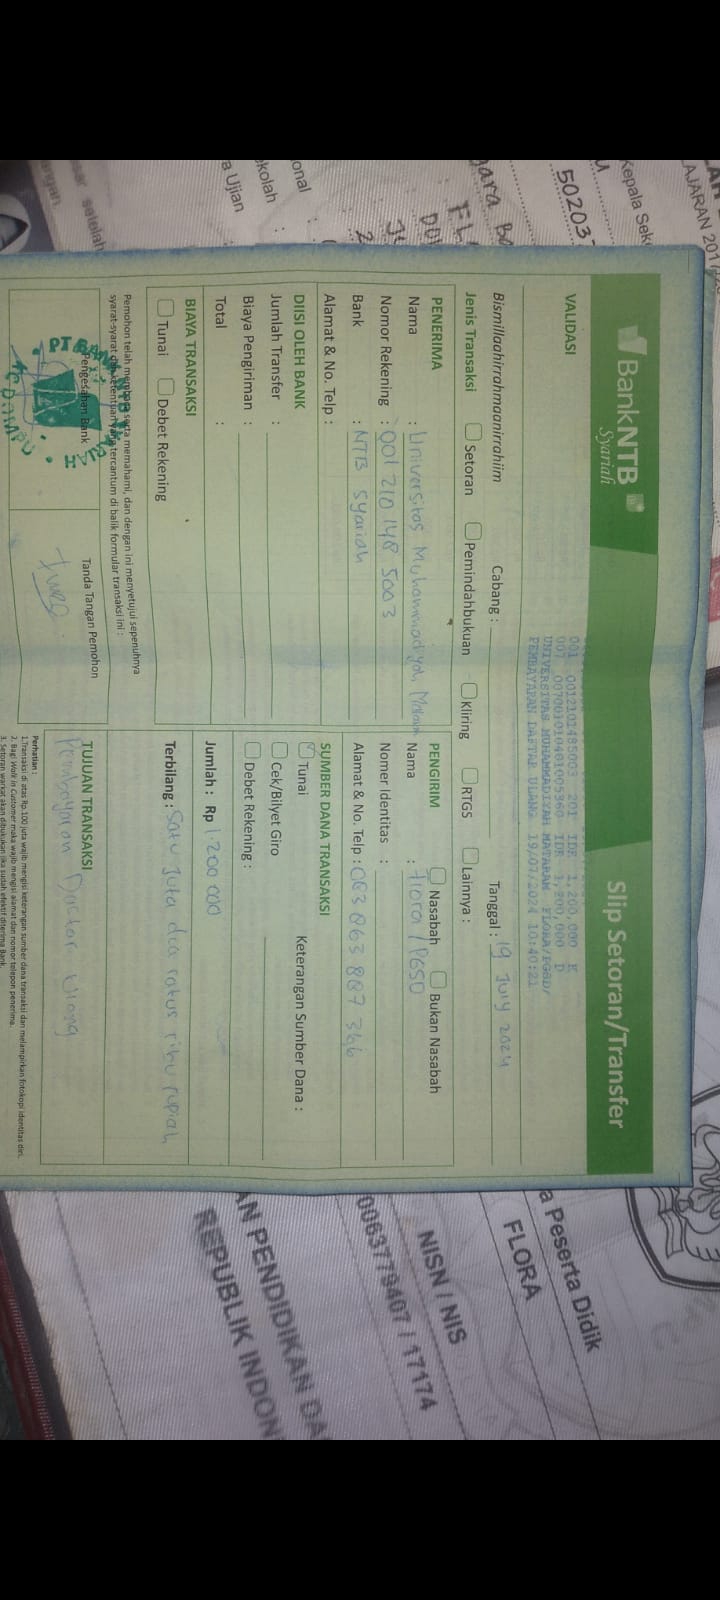 BankNTB
Syariah
Slip Setoran/Transfer
VALIDASI
001 0012102485003 201 IDR 1,200,000 K
007 007001010401005360 IDR 1,200,000 D
UNIVERSITAS MUHAMMADIYAH MATARAM FLORA/PGSD/
PEMBAYARAN DAFTAR ULANG 19/07/2024 10:40:21
Bismillaahirrahmaanirrahiim
Cabang :
Tanggal : 19 July 2024
Jenis Transaksi Setoran Pemindahbukuan Kliring RTGS Lainnya :
PENERIMA
Nama : Universitas Muhammadiyah Mataram
Nomor Rekening : 001 210 148 5003
Bank : NTB Syariah
Alamat & No. Telp :
PENGIRIM Nasabah Bukan Nasabah
Nama : Flora / PGSD
Nomer Identitas :
Alamat & No. Telp : 063 863 887 366
DIISI OLEH BANK
Jumlah Transfer :
Biaya Pengiriman :
Total :
SUMBER DANA TRANSAKSI
Tunai Keterangan Sumber Dana :
Cek/Bilyet Giro
Debet Rekening :
BIAYA TRANSAKSI
Tunai Debet Rekening
Jumlah : Rp 1.200 000
Terbilang : Satu Juta dua ratus ribu rupiah
Pemohon telah membaca serta memahami, dan dengan ini menyetujui sepenuhnya
syarat-syarat dan ketentuan yang tercantum di balik formular transaksi ini :
Pengesahan Bank
Tanda Tangan Pemohon
PT BANK NTB SYARIAH
DOMPU
TUJUAN TRANSAKSI
Pembayaran Daftar Ulang
Perhatian :
1.Transaksi di atas Rp.100 juta wajib mengisi keterangan sumber dana transaksi dan melampirkan fotokopi identitas diri.
2. Bagi Walk in Customer maka wajib mengisi alamat dan nomor telepon penerima.
3. Setoran warkat akan dibukukan jika sudah efektif diterima Bank.
AJARAN 201
Kepala Sek
50203
gara Ba
FL
DO
onal :
ekolah :
a Ujian :
setelah
a Peserta Didik
FLORA
NISN / NIS
0063779407 / 17174
AN PENDIDIKAN DA
REPUBLIK INDON